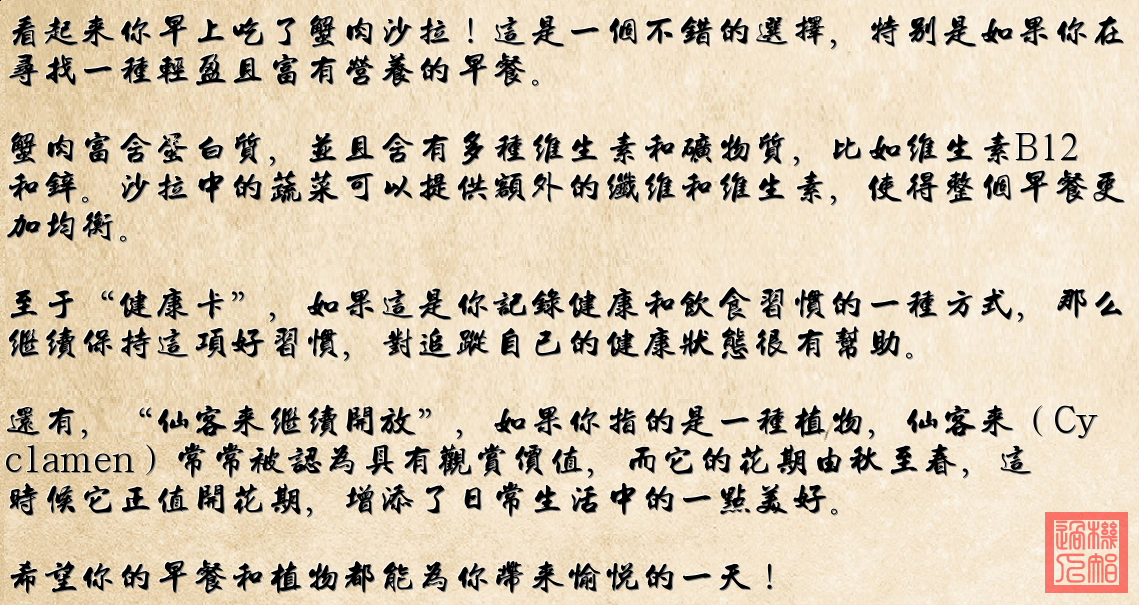 看起来你早上吃了蟹肉沙拉！這是一個不錯的選擇，特别是如果你在
尋找一種輕盈且富有營養的早餐。
蟹肉富含蛋白質，並且含有多種維生素和礦物質，比如維生素B12
和鋅。沙拉中的蔬菜可以提供額外的纖維和維生素，使得整個早餐更
加均衡。
至于“健康卡”，如果這是你記錄健康和飲食習慣的一種方式，那么
继續保持這項好習慣，對追蹤自己的健康狀態很有幫助。
還有，“仙客来继續開放”，如果你指的是一種植物，仙客来（Cy
clamen）常常被認為具有觀賞價值，而它的花期由秋至春，這
時候它正值開花期，增添了日常生活中的一點美好。
希望你的早餐和植物都能為你帶来愉悦的一天！